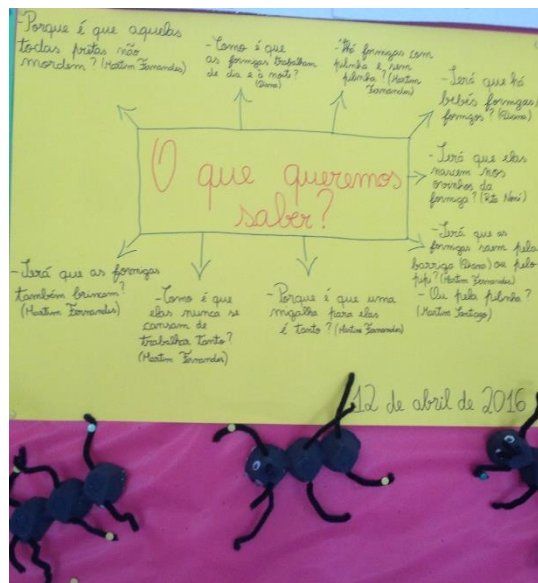 -Porque é que aquelas
todas pretas não
mordem? (Martim Fernandes)
-Como é que
as formigas trabalham
de dia e à noite?
(Diana)
-Há formigas com
pilinha e sem
pilinha? (Martim
Fernandes)
-Será que há
bebés formigas/
formigos? (Diana)
-Será que elas
nascem nos
ovinhos da
formiga? (Rita)
-Será que as
formigas saem pela
barriga (Diana) ou pelo
pipi? (Martim Fernandes)
- Ou pela pilinha?
(Martim Santiago)
O que queremos
saber?
-Será que as formigas
também brincam?
(Martim Fernandes)
-Como é que
elas nunca se
cansam de
trabalhar tanto?
(Martim Fernandes)
-Porque é que uma
migalha para elas
é tanto? (Martim Fernandes)
12 de abril de 2016